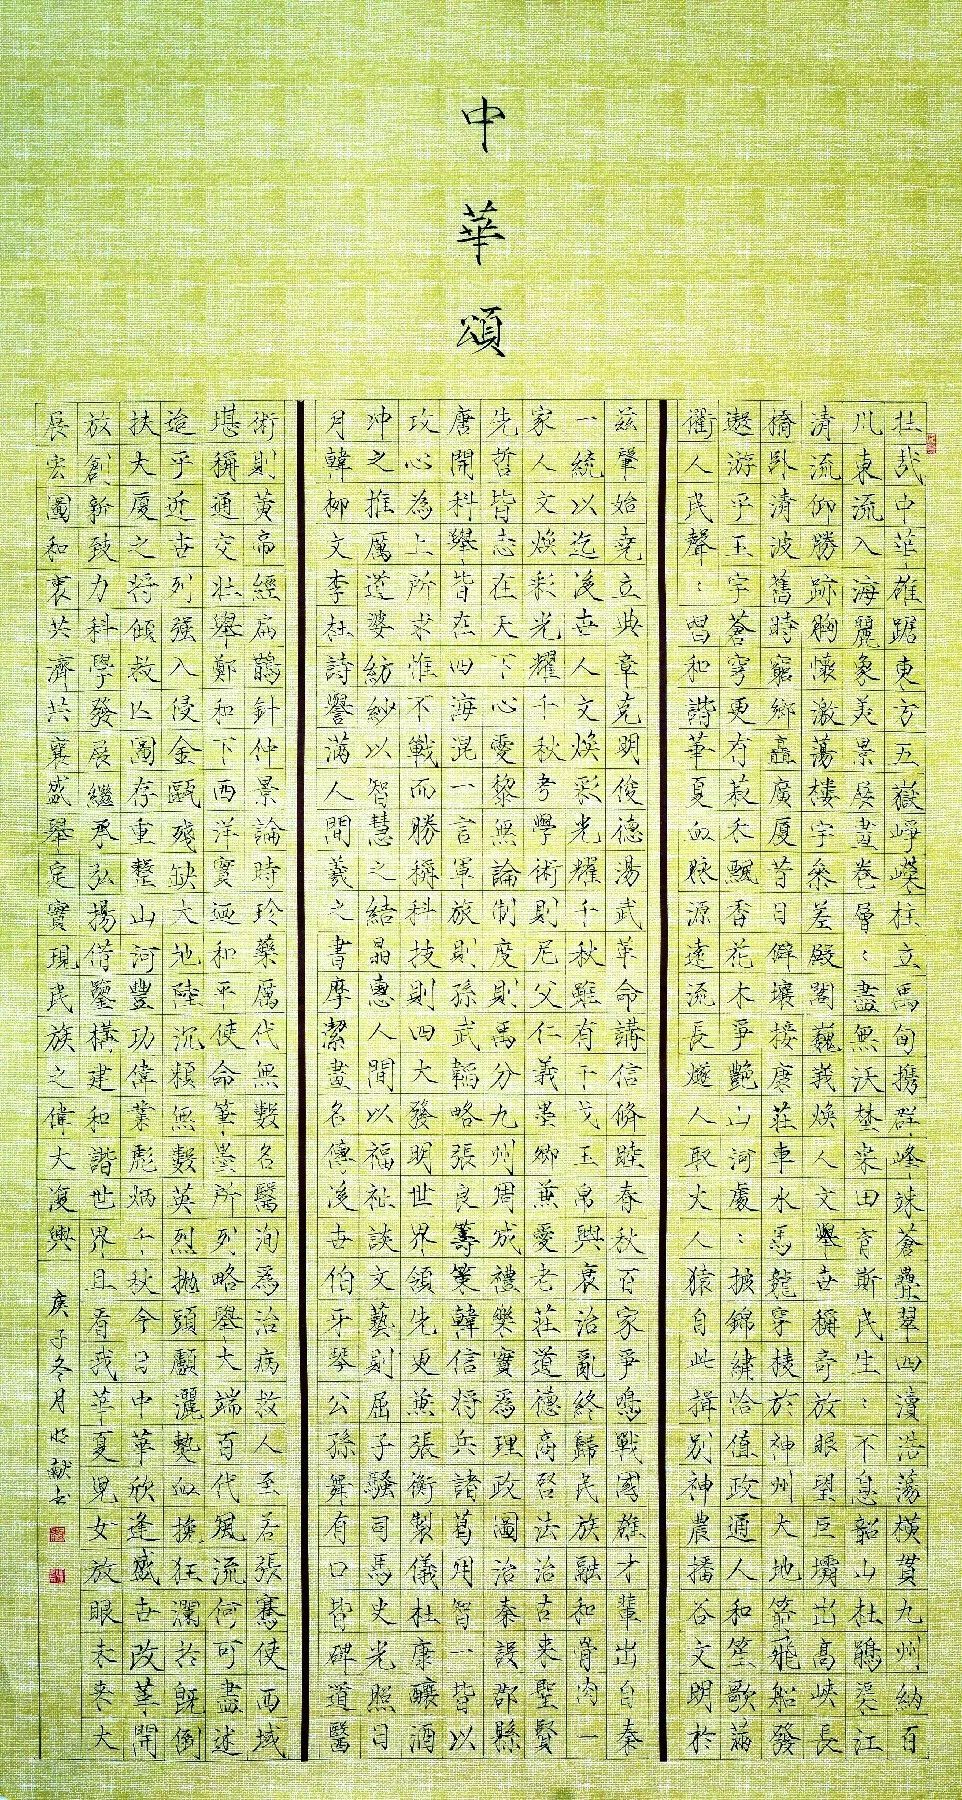 中華頌
壯哉中華雄踞東方五嶽崢嶸柱立禹甸攜群峰竦蒼疊翠四瀆浩蕩橫貫九州納百
川東流入海麗象美景展畫卷層：盡無沃埜采田育斯民生：不息韶山杜鵑江
清流仰勝跡胸懷激蕩樓宇參差殿閣巍峩煥人文舉世稱奇放眼望巨壩出高峽長
橋卧清波舊時窮鄉矗廣厦昔日僻壤接康莊車水馬龍穿梭於神州大地箭飛船發
遨游乎玉宇蒼穹更有菽禾飄香花木爭艷山河處：披錦繡洽值政通人和笙歌滿
衢人民聲：唱和諧華夏血脉源遠流長燧人取火人猿自此揖別神農播谷文明於
茲肇始堯立典章克明俊德湯武革命講信脩睦春秋百家爭鳴戰國雄才輩出自秦
一統以迄後世人文煥彩光耀千秋雖有干戈玉帛興衰治亂終歸民族融和骨肉一
家人文煥彩光耀千秋考學術則尼父仁義墨卿兼愛老莊道德商君法治古來聖賢
先哲皆志在天下心愛黎無論制度則禹分九州周成禮樂實爲理政圖治秦設郡縣
唐開科舉皆在四海混一言軍旅則孫武韜略張良籌策韓信將兵諸葛用智一皆以
攻心為上所求惟不戰而勝稱科技則四大發明世界領先更兼張衡製儀杜康釀酒
冲之推厲道婆紡紗以智慧之結晶惠人間以福祉談文藝則屈子騷司馬史光照日
月韓柳文李杜詩譽滿人間羲之書摩潔畫名傳後世伯牙琴公孫舞有口皆碑道醫
術則黃帝經扁鵲針仲景論時珍藥厲代無數名醫洵爲治病救人至若張騫使西域
堪稱通交壯舉鄭和下西洋實迺和平使命筆墨所列略舉大端百代風流何可盡述
迨乎近世列强入侵金甌殘缺大地陸沉賴無數英烈拋頭顱灑熱血挽狂瀾於既倒
扶大厦之將傾救亡圖存重整山河豐功偉業彪炳千秋今日中華欣逢盛世改革開
放創新致力科學發展繼承弘揚借鑒構建和諧世界且看我華夏兒女放眼未來大
展宏圖和衷共濟共襄盛舉定實現民族之偉大復興 庚子冬月